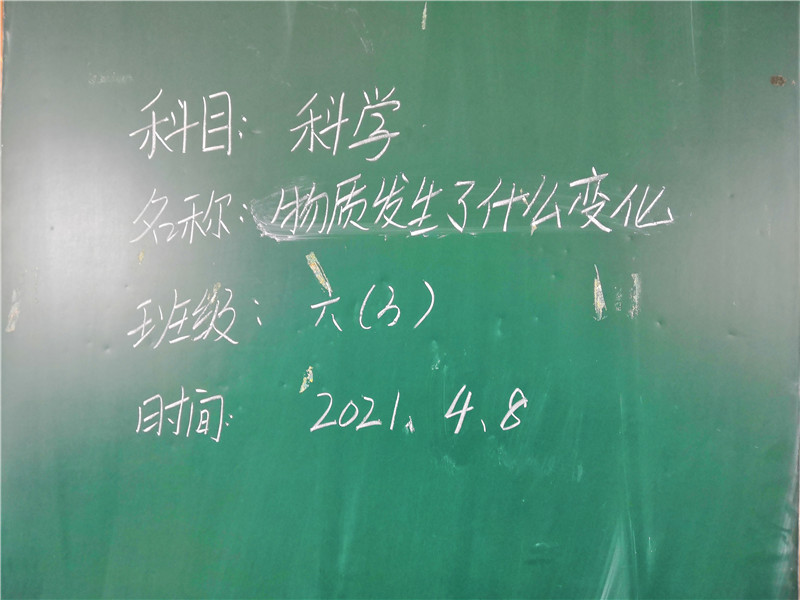 科目: 科学
名称: 物质发生了什么变化
班级: 六(3)
时间: 2021、4、8